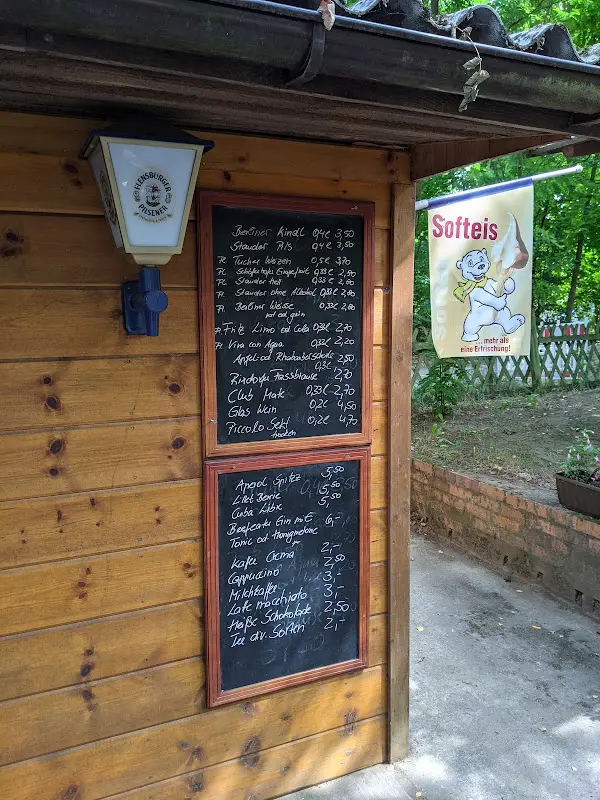 FLENSBURGER
PILSENER
Berliner Kindl 0,4 € 3,50
Stauder Pils 0,4 € 3,50
Tucher Weizen 0,5 € 3,70
Schöfferhofer Grapefruit 0,33 € 2,80
Stauder hell 0,33 € 2,80
Stauder ohne Alkohol 0,33 € 2,80
Berliner Weisse 0,33 € 2,80
rot od grün
Fritz Limo od Cola 0,33 € 2,70
Viva con Agua 0,33 € 2,20
Apfel od Rhabarberschorle 2,50
0,3 €
Fassbrause 2,70
Club Mate 0,33 € 2,70
Glas Wein 0,2 € 4,50
Piccolo Sekt 0,2 € 4,70
trocken
Aperol Spritz 5,50
Lillet Berrie 5,50
Cuba Libre 5,50
Beefeater Gin mit 6,-
Tonic od Honigmelone
Kaffe Crema 2,-
Cappuccino 2,50
Milchkaffee 3,-
Latte macchiato 3,-
Heiße Schokolade 2,50
Tee div. Sorten 2,-
Softeis
...mehr als
eine Erfrischung!